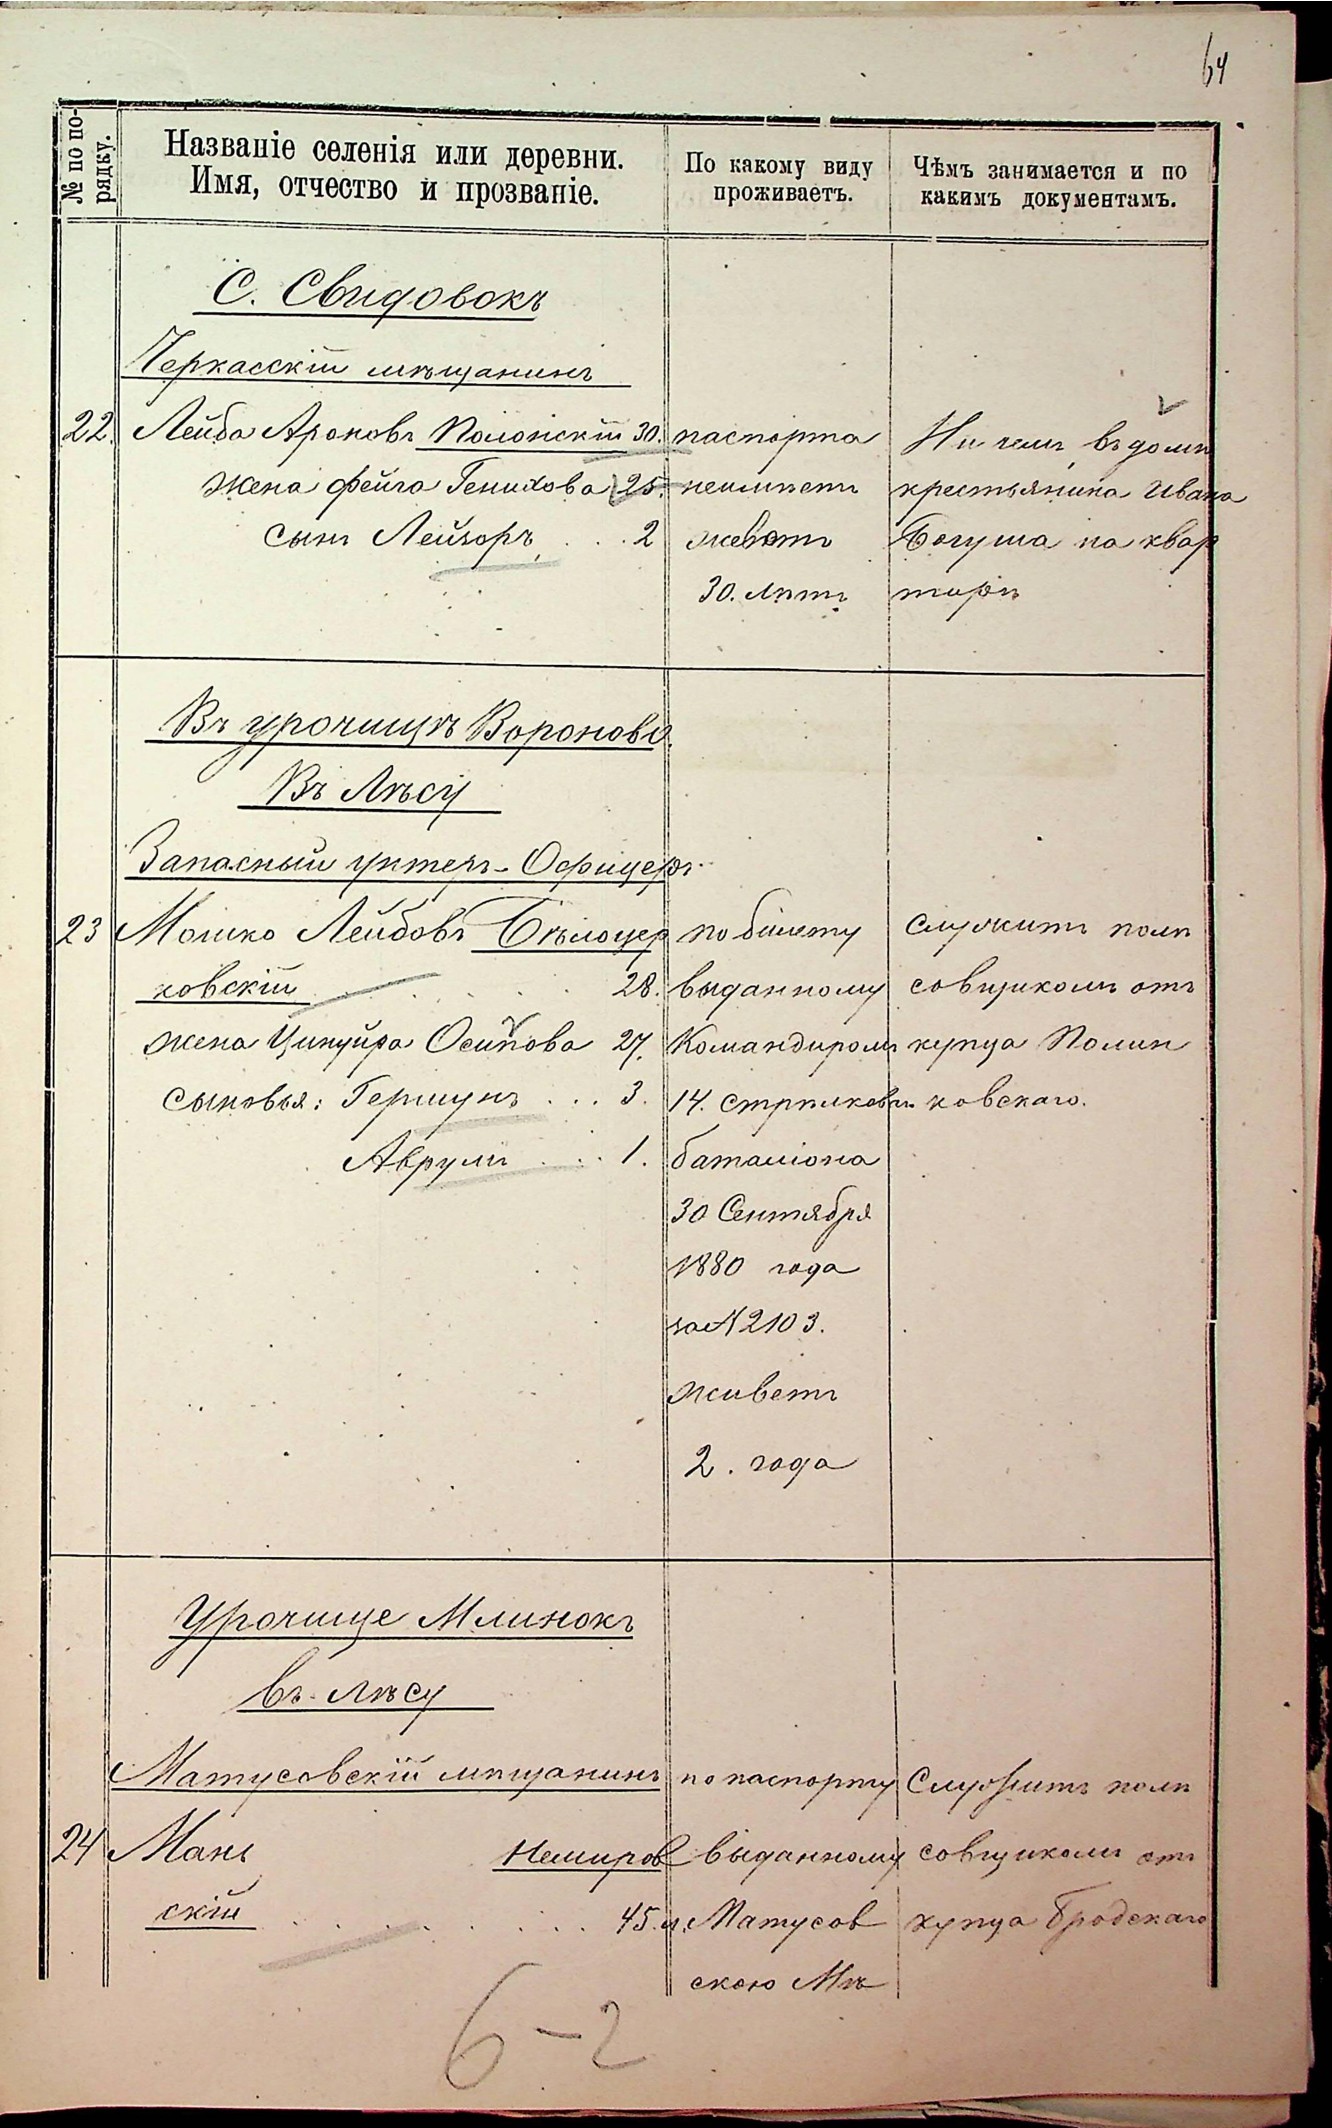 64
№ по по-
рядку.
Названіе селенія или деревни.
Имя, отчество и прозваніе.
По какому виду
проживаетъ.
Чѣмъ занимается и по
какимъ документамъ.
С. Свидовокъ
Черкасскій мѣщанинъ
22. Лейба Ароновъ Полонскій 30.
жена Фейга Генихова 25.
сынъ Лейзоръ . . . 2
паспорта
неимѣетъ
живетъ
30. лѣтъ
Ни чемъ, въ домѣ
крестьянина Ивана
Богуша на квар
тирѣ
Въ урочищѣ Вороново.
Въ Лѣсу
Запасный унтеръ-Офицеръ
23 Мошко Лейбовъ Бѣлоцер
ковскій . . . . . 28.
жена Ципуйра Осипова 27.
сыновья: Гершунъ . . . 3.
Аврумъ . . . 1.
по билету
выданному
Командиромъ
14. стрѣлковаго
баталіона
30 Сентября
1880 года
за № 2103.
живетъ
2. года
служитъ полѣ
совщикомъ отъ
купца Полин
ковскаго.
Урочище Млинокъ
въ лѣсу
Матусовскій мѣщанинъ
24 Мань Немиров
скій . . . . . . . . 45.
по паспорту
выданному
Матусов
скою Мѣ
Служитъ полѣ
совщикомъ отъ
купца Бродскаго
6-2